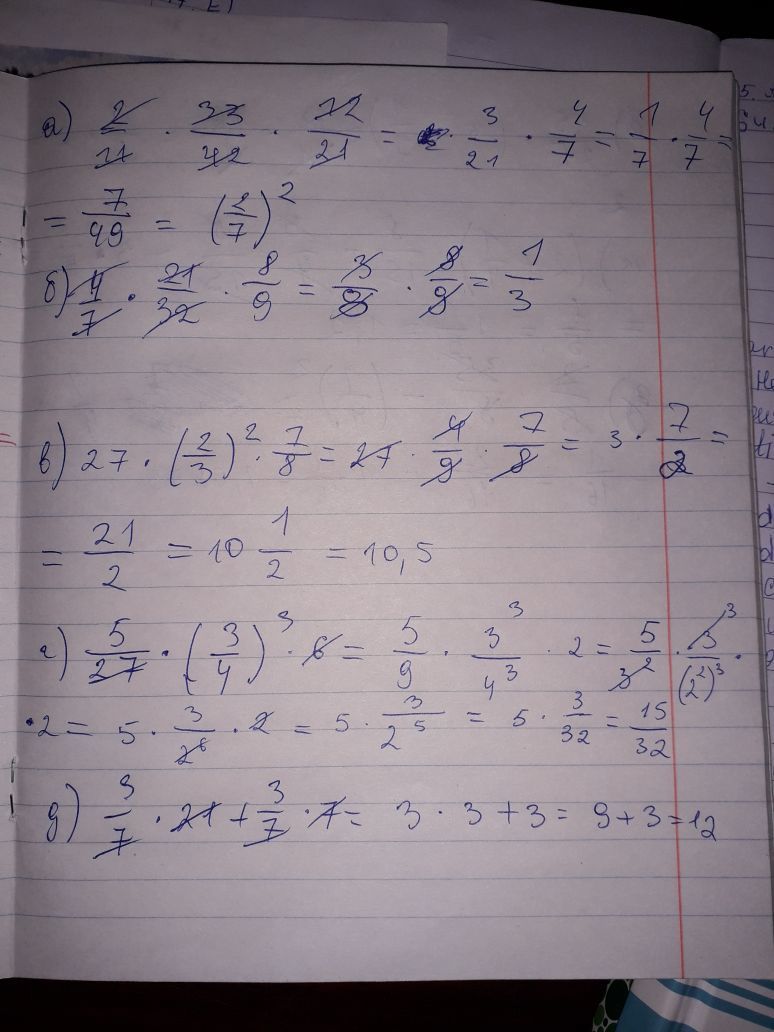 а) 2/11 · 33/42 · 12/21 = · 3/21 · 4/7 = 1/7 · 4/7 =
= 7/49 = (2/7)²
б) 4/7 · 21/32 · 8/9 = 3/8 · 8/9 = 1/3
в) 27 · (2/3)² · 7/8 = 27 · 4/9 · 7/8 = 3 · 7/2 =
= 21/2 = 10 1/2 = 10,5
г) 5/27 · (3/4)³ · 6 = 5/9 · 3³/4³ · 2 = 5/3² · 3³/(2²)³ ·
· 2 = 5 · 3/2⁶ · 2 = 5 · 3/2⁵ = 5 · 3/32 = 15/32
д) 3/7 · 21 + 3/7 · 7 = 3 · 3 + 3 = 9 + 3 = 12